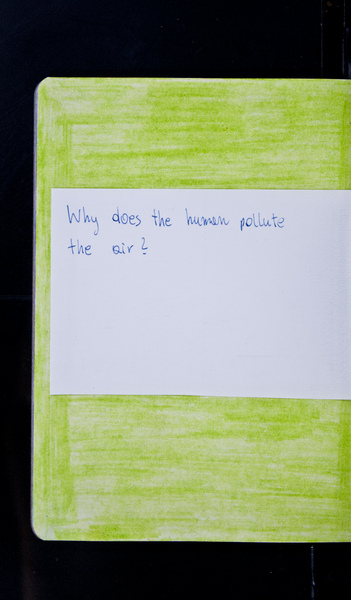 Why does the human pollute
the air?